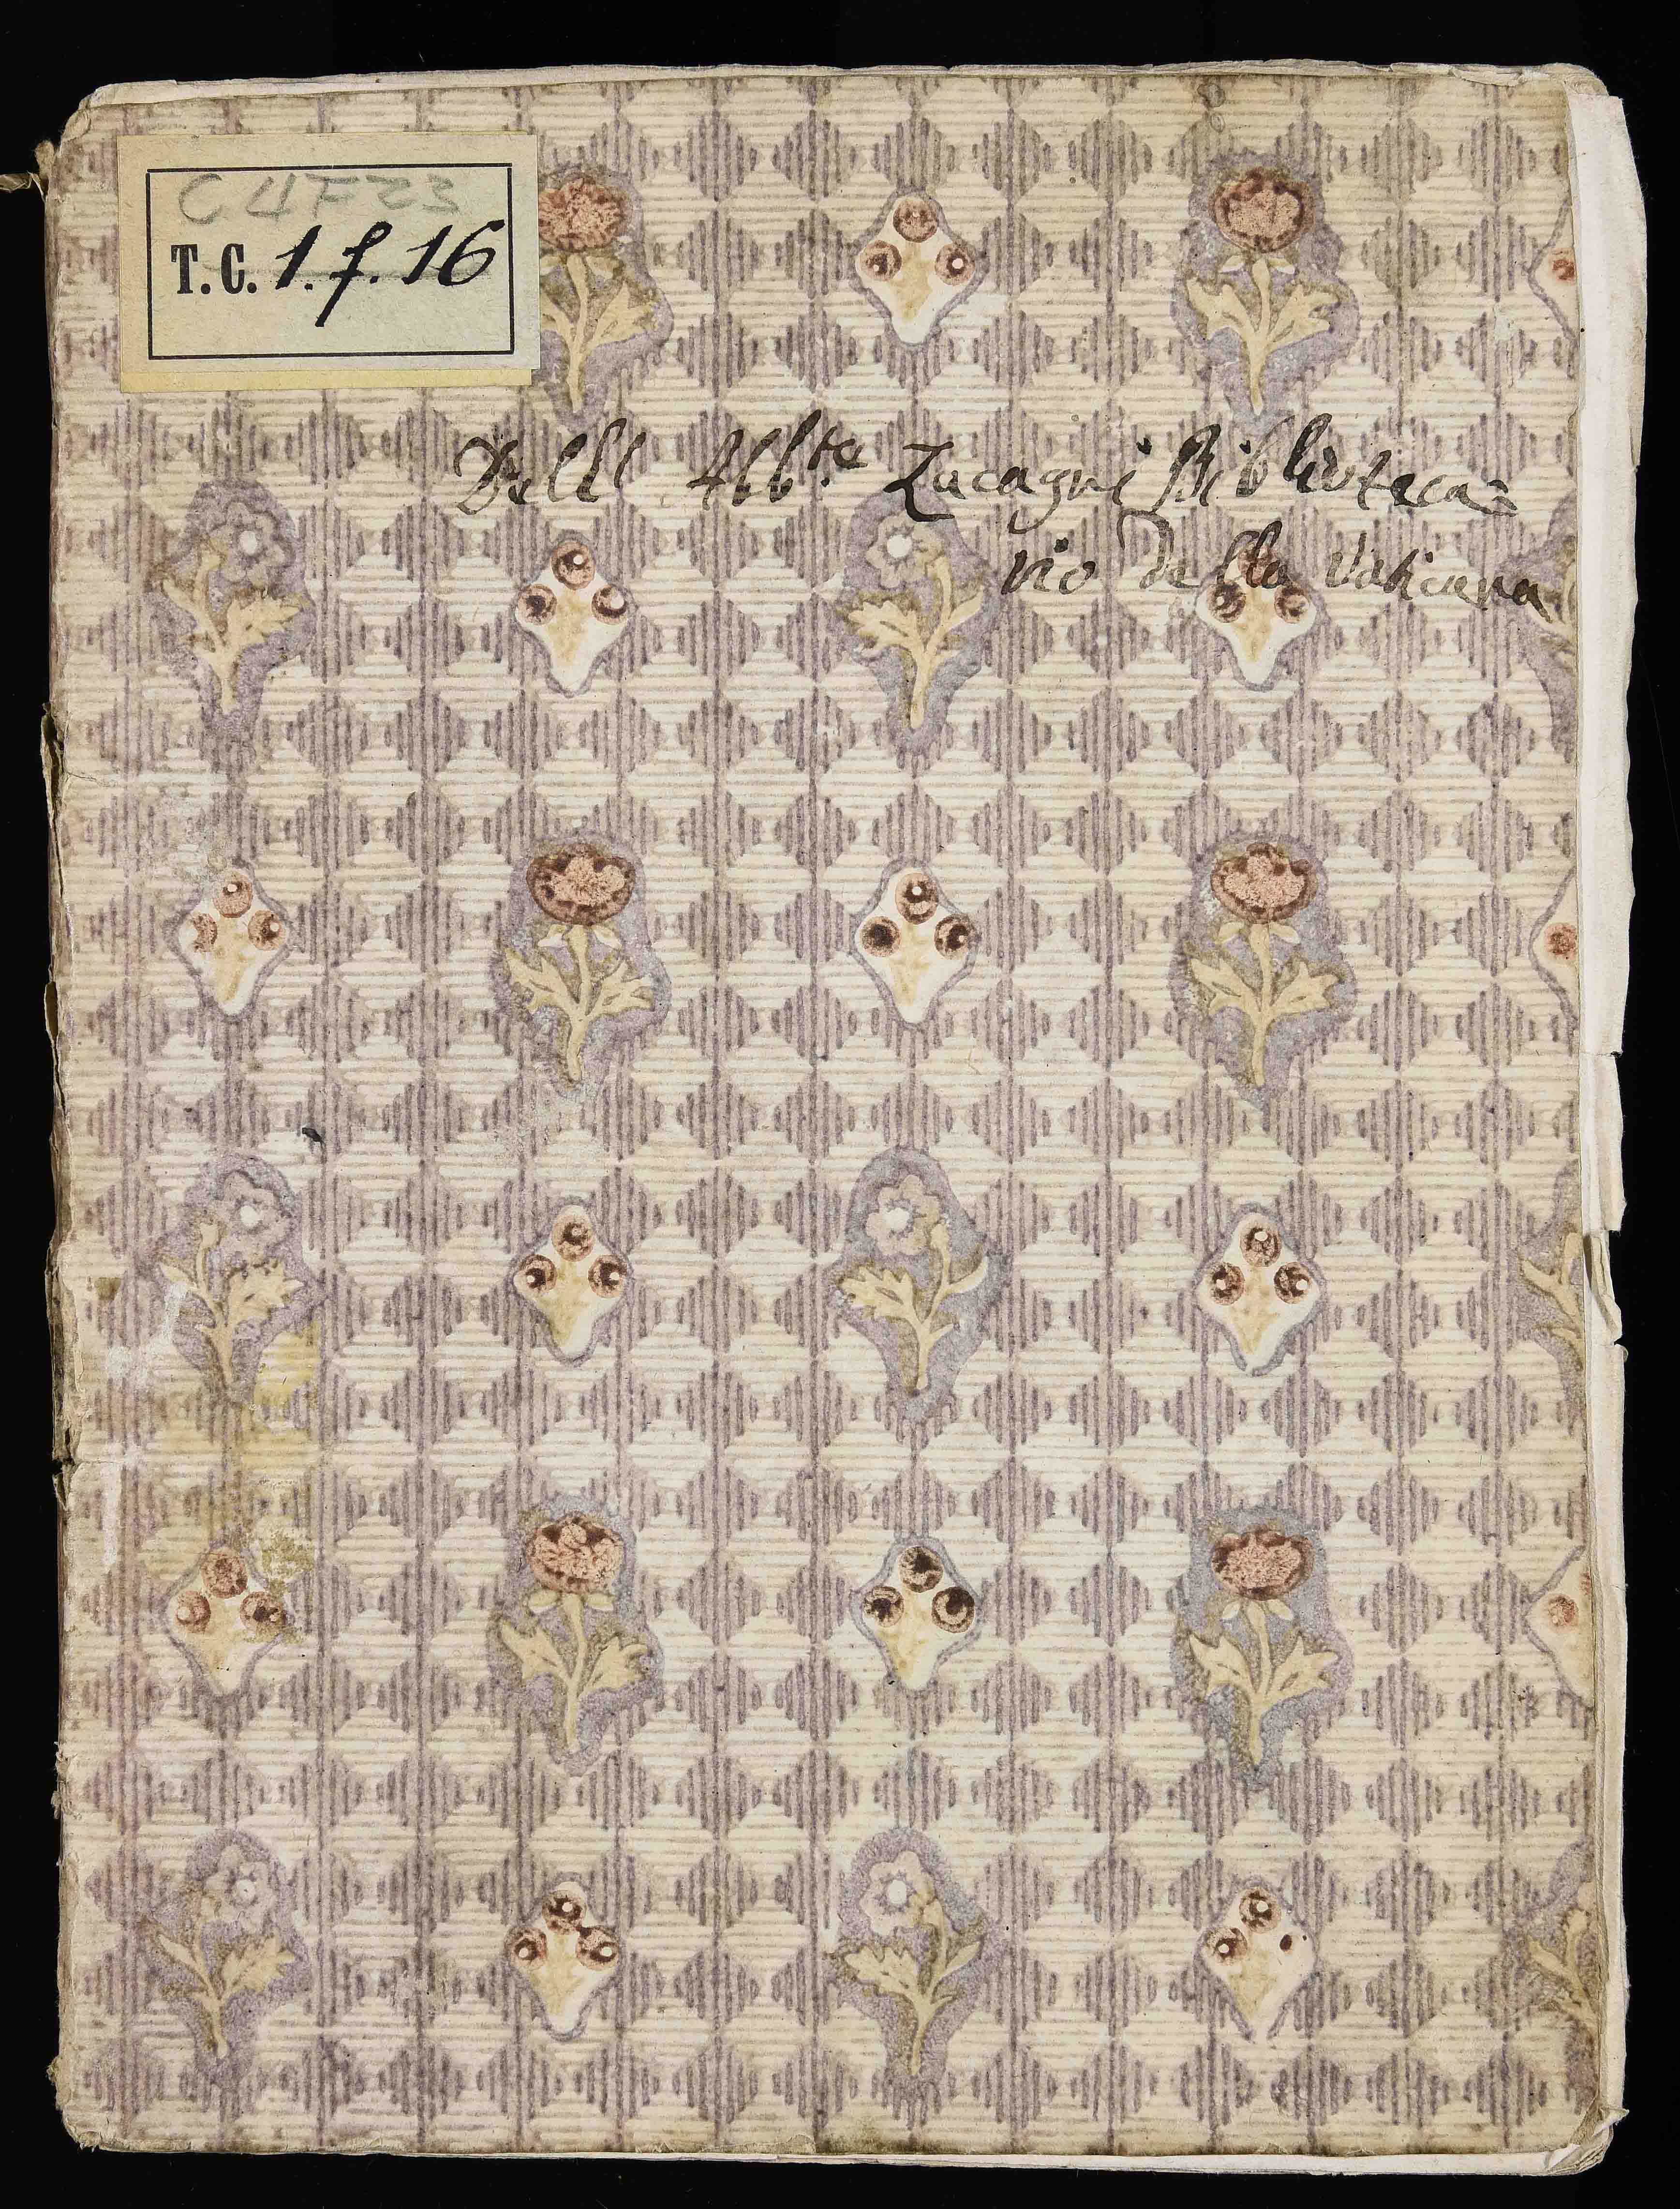 C 4 F 23
T. C. 1. f. 16
Dell Abb.te Zacagni Biblioteca=
rio della Vaticana